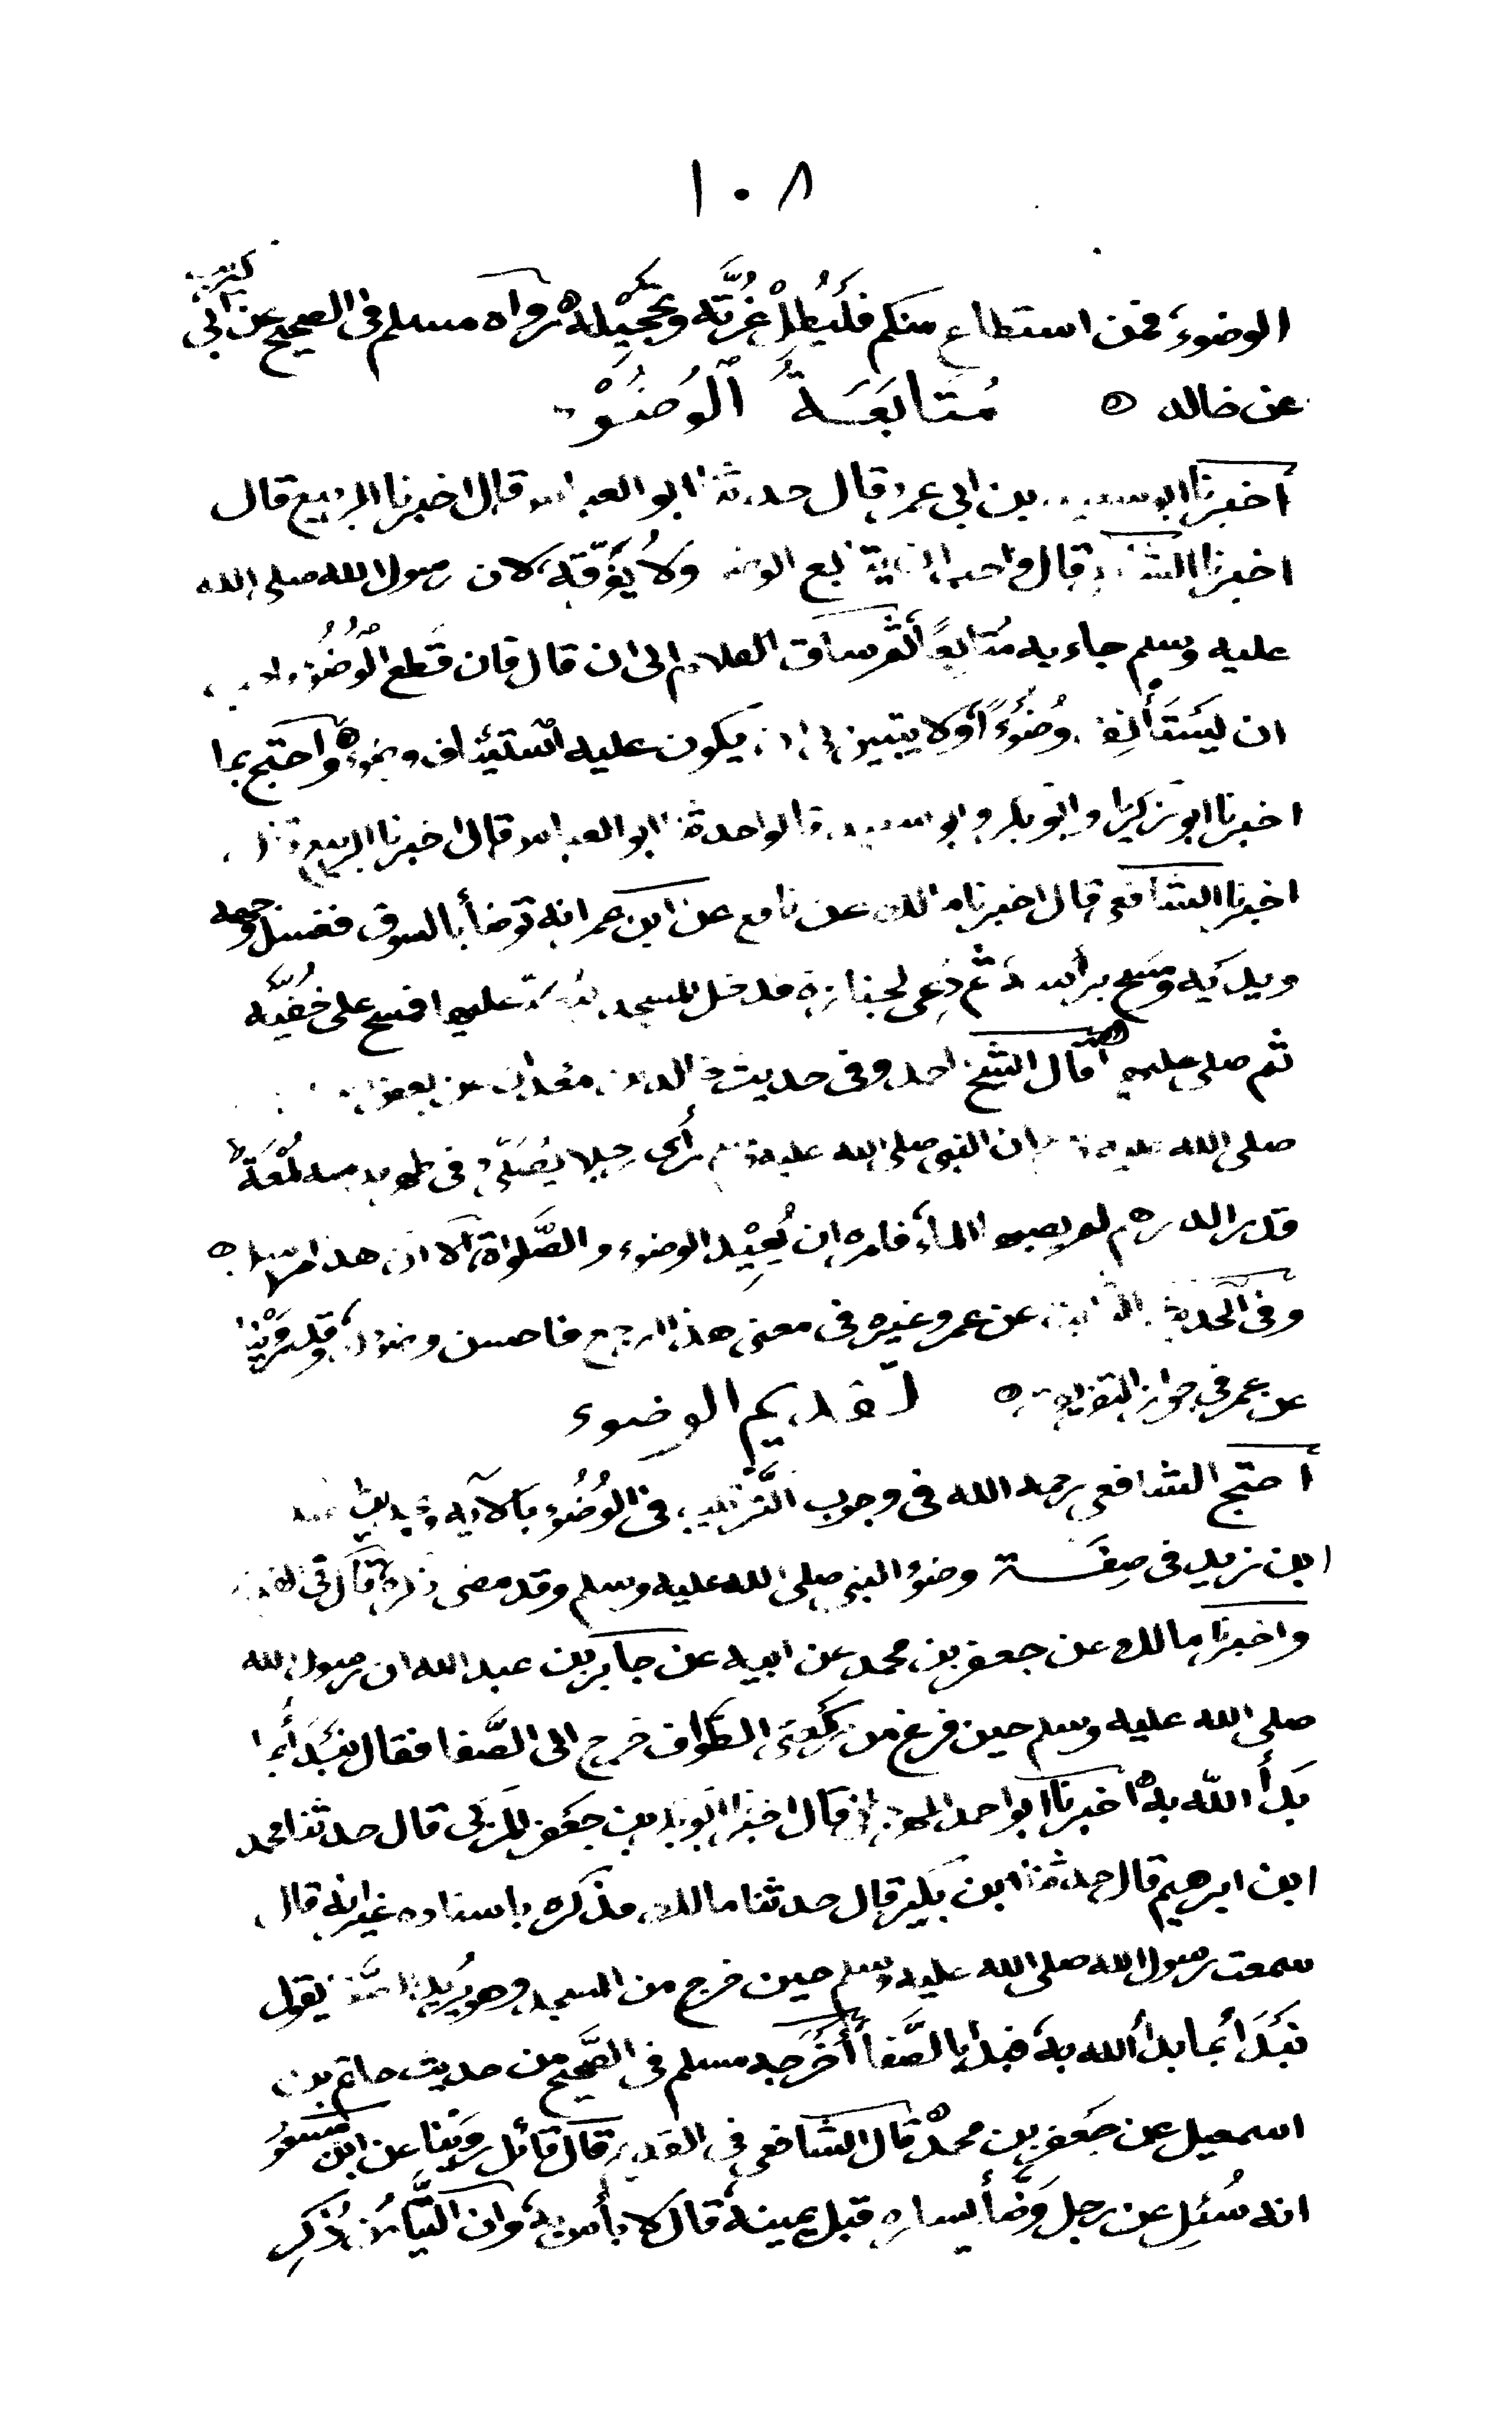 ١٠٨
الوضوء فمن استطاع منكم فَلْيُطِلْ غُرَّتَه وتحجيله رواه مسلم فى الصحيح عن ابى كريب
عن خالد ه مُتَابَعَةُ الوُضُوْء
أخبرنا ابو سعيد بن ابى عمرو قال حدثنا ابو العباس قال اخبرنا الربيع قال
اخبرنا الشافعى قال واحب ان يتابع الوضوء ولا يُفَرِّقَه لان رسول الله صلى الله
عليه وسلم جاء به مُتَابِعًا ثم ساق الكلام الى ان قال فان قَطع الوُضُوْء
ان يَسْتَأْنِفَ وُضُوْءًا ولا يتبين لى ان يكون عليه استئناف وضوء ه واحتج بما
اخبرنا ابو زكريا وابو بكر وابو سعيد قالوا حدثنا ابو العباس قال اخبرنا الربيع قال
اخبرنا الشافعى قال اخبرنا مالك عن نافع عن ابن عمر انه توضأ بالسوق فغسل وجهه
ويديه ومسح برأسه ثم دُعِى لجنازة فدخل المسجد ليصلى عليها فمسح على خُفَّيْه
ثم صلى عليها ه قال الشيخ احمد وفى حديث خالد بن معدان عن بعض
صلى الله عليه وسلم ان النبى صلى الله عليه وسلم رأى رجلا يُصَلِّى فى ظهر قدمه لُمْعَةٌ
قدر الدرهم لم يصبها الماء فامره ان يُعِيْد الوضوء والصَّلواة الا ان هذا مرسل ه
وفى الحديث الثابت عن عمر وغيره فى معنى هذا ارجع فاحسن وضوءك وقد رَوَيْنَا
عن عمر فى جواز التفريق ه تقديم الوضوء
أحتج الشافعى رحمه الله فى وجوب التَّرتيب فى الوُضُوْء بالآية وبحديث عبد الله
ابن زيد فى صِفَة وضوء النبى صلى الله عليه وسلم وقد مضى ذكره قال
واخبرنا مالك عن جعفر بن محمد عن ابيه عن جابر بن عبد الله ان رسول الله
صلى الله عليه وسلم حين فرغ من ركعتى الطواف خرج الى الصَّفا فقال نَبْدَأُ بما
بَدأ اللّه به ه اخبرنا ابو احمد المهرجانى قال اخبرنا ابو بكر بن جعفر المزكى قال حدثنا محمد
ابن ابرهيم قال حدثنا ابن بكير قال حدثنا مالك فذكره باسناده غير انه قال
سمعت رسول الله صلى الله عليه وسلم حين خرج من المسجد وهو يُرِيْد الصَّفا يقول
نَبْدَأ بما بدأ الله به فبدأ بالصَّفا أَخْرَجه مسلم فى الصَّحيح من حديث حاتم بن
اسمعيل عن جعفر بن محمد ه قال الشافعى فى القديم قال قائل روينا عن ابن مسعود
انه سُئِل عن رجل وَضَّأ يساره قبل يمينه قال لا بأس به وان التَّيَامُن ذُكِر